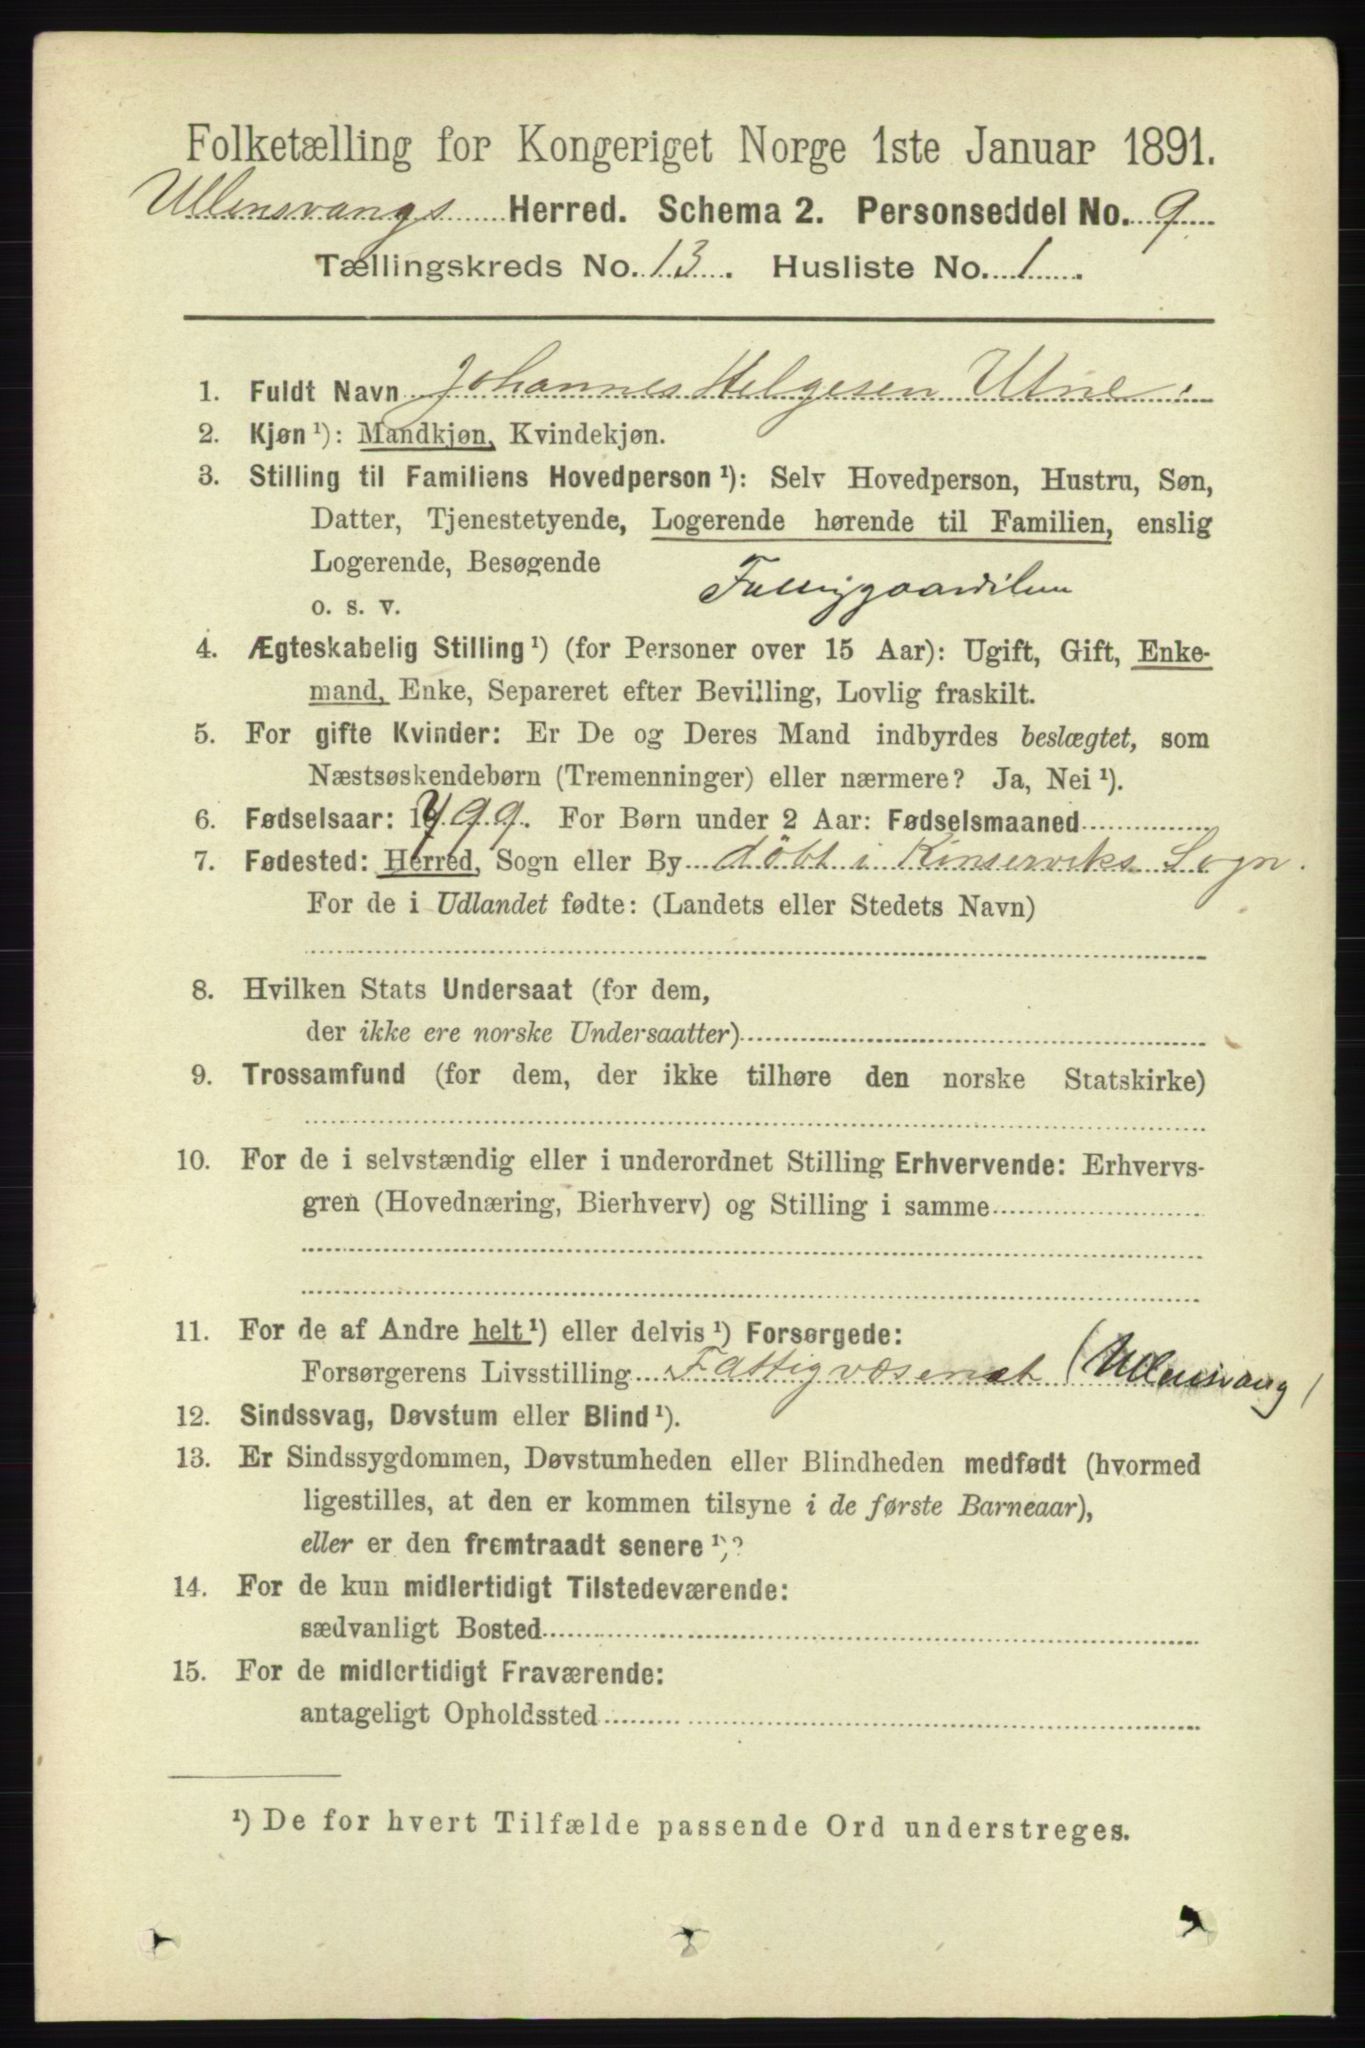 Folketælling for Kongeriget Norge 1ste Januar 1891.
Ullensvangs Herred. Schema 2. Personseddel No. 9
Tællingskreds No. 13. Husliste No. 1.
1. Fuldt Navn Johannes Helgesen Utne.
2. Kjøn¹): Mandkjøn, Kvindekjøn.
3. Stilling til Familiens Hovedperson¹): Selv Hovedperson, Hustru, Søn,
Datter, Tjenestetyende, Logerende hørende til Familien, enslig
Logerende, Besøgende
o. s. v.
4. Ægteskabelig Stilling¹) (for Personer over 15 Aar): Ugift, Gift, Enke-
mand, Enke, Separeret efter Bevilling, Lovlig fraskilt.
5. For gifte Kvinder: Er De og Deres Mand indbyrdes beslægtet, som
Næstsøskendebørn (Tremenninger) eller nærmere? Ja, Nei¹).
6. Fødselsaar: 1799. For Børn under 2 Aar: Fødselsmaaned
7. Fødested: Herred, Sogn eller By døbt i Kinserviks Sogn.
For de i Udlandet fødte: (Landets eller Stedets Navn)
8. Hvilken Stats Undersaat (for dem,
der ikke ere norske Undersaatter)
9. Trossamfund (for dem, der ikke tilhøre den norske Statskirke)
10. For de i selvstændig eller i underordnet Stilling Erhvervende: Erhvervs-
gren (Hovednæring, Bierhverv) og Stilling i samme
11. For de af Andre helt¹) eller delvis¹) Forsørgede:
Forsørgerens Livsstilling Fattigvæsenet (Ullensvang)
12. Sindssvag, Døvstum eller Blind¹).
13. Er Sindssygdommen, Døvstumheden eller Blindheden medfødt (hvormed
ligestilles, at den er kommen tilsyne i de første Barneaar),
eller er den fremtraadt senere¹)?
14. For de kun midlertidigt Tilstedeværende:
sædvanligt Bosted
15. For de midlertidigt Fraværende:
antageligt Opholdssted
¹) De for hvert Tilfælde passende Ord understreges.